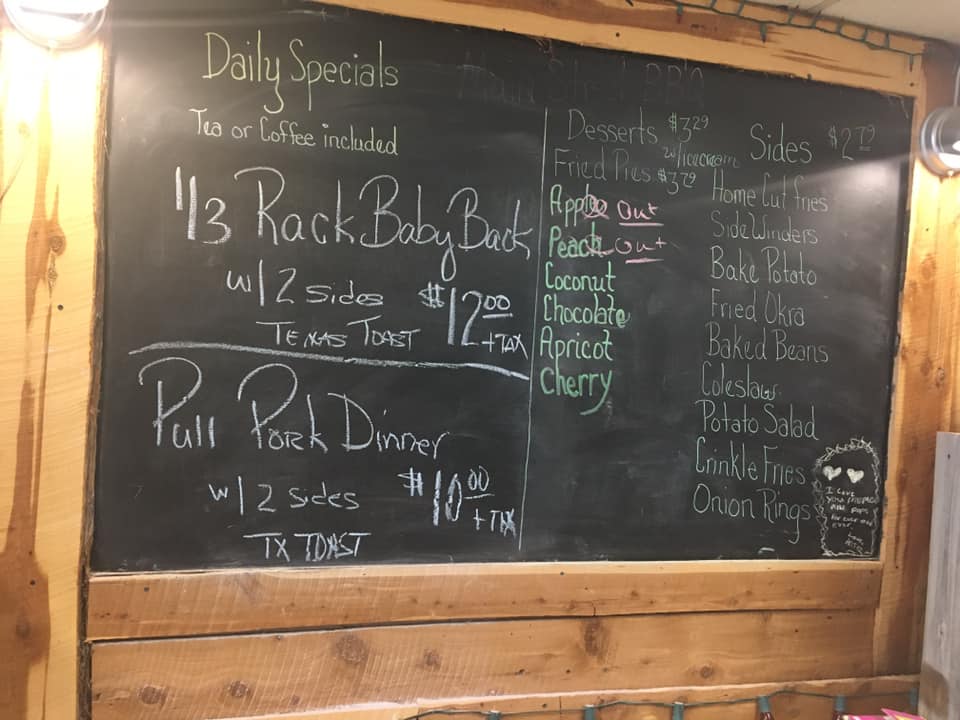 Main Street BBQ
Daily Specials
Tea or Coffee included
1/3 Rack Baby Back
w/ 2 sides $12.00
Texas Toast + TAX
Pull Pork Dinner
w/ 2 sides $10.00
+ TAX
TX TOAST
Desserts $3.29
w/icecream
Fried Pies $3.79
Apple Out
Peach Out
Coconut
Chocolate
Apricot
Cherry
Sides $2.79
Home Cut fries
SideWinders
Bake Potato
Fried Okra
Baked Beans
Coleslaw
Potato Salad
Crinkle Fries
Onion Rings
I Love
and pops
for ever and
ever
Love